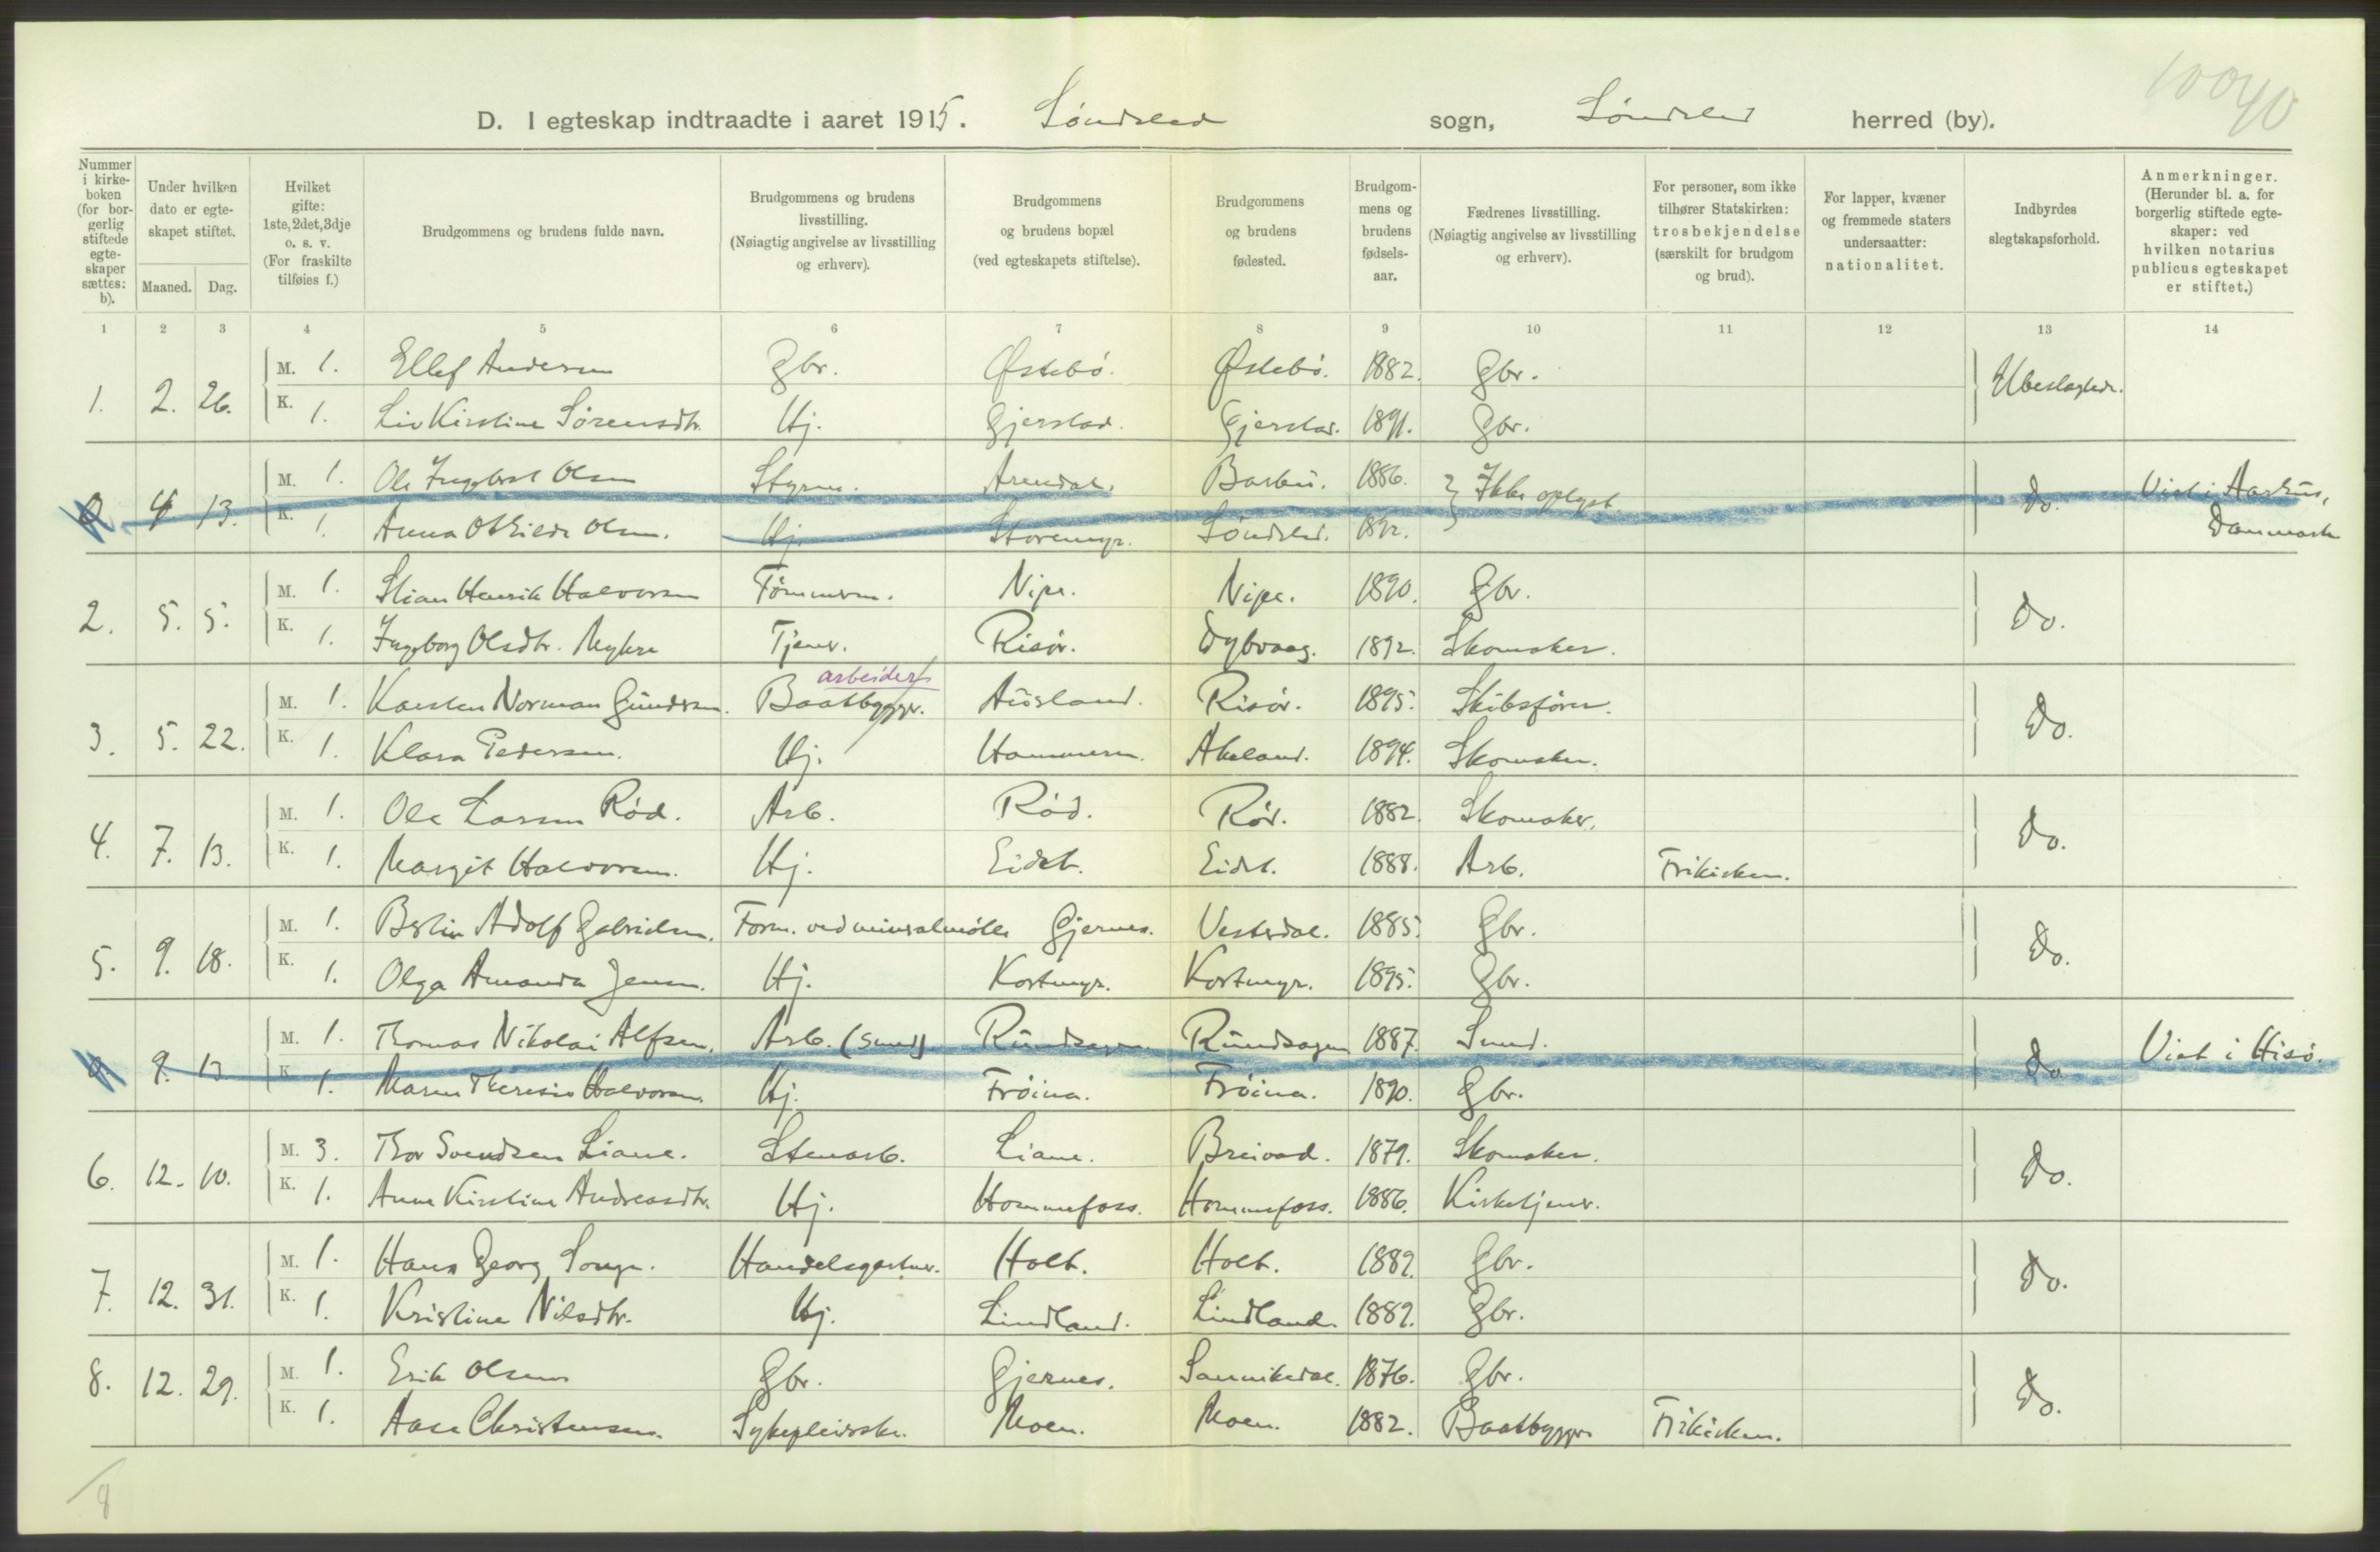 10040
D. I egteskap indtraadte i aaret 1915. Søndeled sogn, Søndeled herred (by).
Nummer i kirkeboken (for borgerlig stiftede egteskaper sættes: b).
Under hvilken dato er egteskapet stiftet.
Maaned. Dag.
Hvilket gifte: 1ste, 2det, 3dje o. s. v. (For fraskilte tilføies f.)
Brudgommens og brudens fulde navn.
Brudgommens og brudens livsstilling. (Nøiagtig angivelse av livsstilling og erhverv).
Brudgommens og brudens bopæl (ved egteskapets stiftelse).
Brudgommens og brudens fødested.
Brudgommens og brudens fødselsaar.
Fædrenes livsstilling. (Nøiagtig angivelse av livsstilling og erhverv).
For personer, som ikke tilhører Statskirken: trosbekjendelse (særskilt for brudgom og brud).
For lapper, kvæner og fremmede staters undersaatter: nationalitet.
Indbyrdes slegtskapsforhold.
Anmerkninger. (Herunder bl. a. for borgerlig stiftede egteskaper: ved hvilken notarius publicus egteskapet er stiftet.)
1 2 3 4 5 6 7 8 9 10 11 12 13 14
1. 2. 26. M. 1. Ellef Andersen Gbr. Østebö. Østebö. 1882. Gbr. Ubeslægtede.
K. 1. Liv Kirstine Sörensdtr. Hj. Gjerstad. Gjerstad. 1891. Gbr.
0. 4 13. M. 1. Ole Ingebret Olsen Styrm. Arendal. Barbu. 1886. Ikke oplyst. do. Viet i Aarhus,
K. 1. Anna Othilde Olsen. Hj. Storemyr. Söndeled. 1892. Danmark
2. 5. 5. M. 1. Stian Henrik Halvorsen Tömmerm. Nipe. Nipe. 1890. Gbr. Do.
K. 1. Ingeborg Olsdtr. Myhre Tjener. Risör. Dybvaag. 1892. Skomaker.
arbeider
3. 5. 22. M. 1. Karsten Norman Gundersen. Baatbygger. Ausland. Risör. 1895. Skibsförer. Do.
K. 1. Klara Pedersen. Hj. Hammeren. Akeland. 1894. Skomaker.
4. 7. 13. M. 1. Ole Larsen Röd. Arb. Röd. Röd. 1882. Skomaker. Do.
K. 1. Margit Halvorsen. Hj. Eidet. Eidet. 1888. Arb. Frikirken.
5. 9. 18. M. 1. Bertin Adolf Gabrielsen. Form. ved mineralmölle Gjernes. Vesterdal. 1885. Gbr. Do.
K. 1. Olga Amanda Jensen. Hj. Kortmyr. Kortmyr. 1895. Gbr.
0. 9. 13 M. 1. Thomas Nikolai Alfsen. Arb. (Smed) Rundsagen Rundsagen 1887. Smed. do Viet i Hisö.
K. 1. Maren Theresie Halvorsen. Hj. Fröina. Fröina. 1890. Gbr.
6. 12. 10. M. 3. Thor Svendsen Liane. Stenarb. Liane. Breivad. 1879. Skomaker. Do.
K. 1. Anne Kirstine Andreasdtr. Hj. Hommefoss. Hommefoss. 1886. Kirketjener.
7. 12. 31. M. 1. Hans Georg Songe. Handelsgartner. Holt. Holt. 1889. Gbr. Do.
K. 1. Kristine Nilsdtr. Hj. Lindland. Lindland. 1889. Gbr.
8. 12. 29. M. 1. Erik Olsen Gbr. Gjernes. Sannikedal. 1876. Gbr. Do.
K. 1. Aase Christensen. Sykepleierske. Moen. Moen. 1882. Baatbygger Frikirken.
8